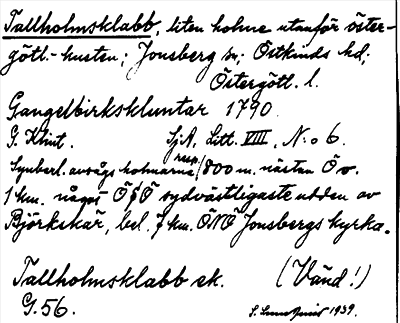 Tallholmsklabb, liten holme utanför öster-
götl.-kusten; Jonsberg sn; Östkinds hd;
Östergötl. l.
Gangelbirkskluntar 1790.
G. Klint. SjA, Litt. VIII, N:o 6.
Synberl. avsågs holmarna resp. 800 m. nästan Ö o.
1 km. något ÖSÖ sydvästligaste udden av
Björkskär, bel. 7 km. ÖNÖ Jonsbergs kyrka.
Tallholmsklabb ek. (Vänd!)
G. 56. 1939.